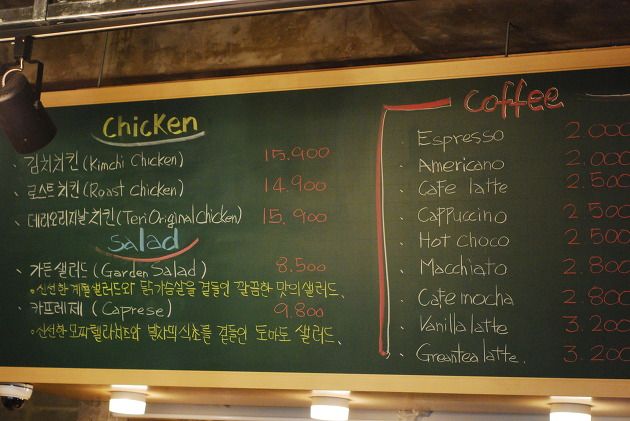 Chicken
· 김치치킨 (Kimchi Chicken) 15.900
· 로스트치킨 (Roast chicken) 14.900
· 테리오리지날치킨 (Teri Original chicken) 15.900
Salad
· 가든샐러드 (Garden Salad) 8.500
• 신선한 계절샐러드와 닭가슴살을 곁들인 깔끔한 맛의 샐러드.
· 카프레제 (Caprese) 9.800
• 신선한 모짜렐라치즈와 발사믹식초를 곁들인 토마토 샐러드.
Coffee
· Espresso 2.000
· Americano 2.000
· Cafe latte 2.500
· Cappuccino 2.500
· Hot choco 2.500
· Macchiato 2.800
· Cafe mocha 2.800
· Vanilla latte 3.200
· Greentea latte. 3.200